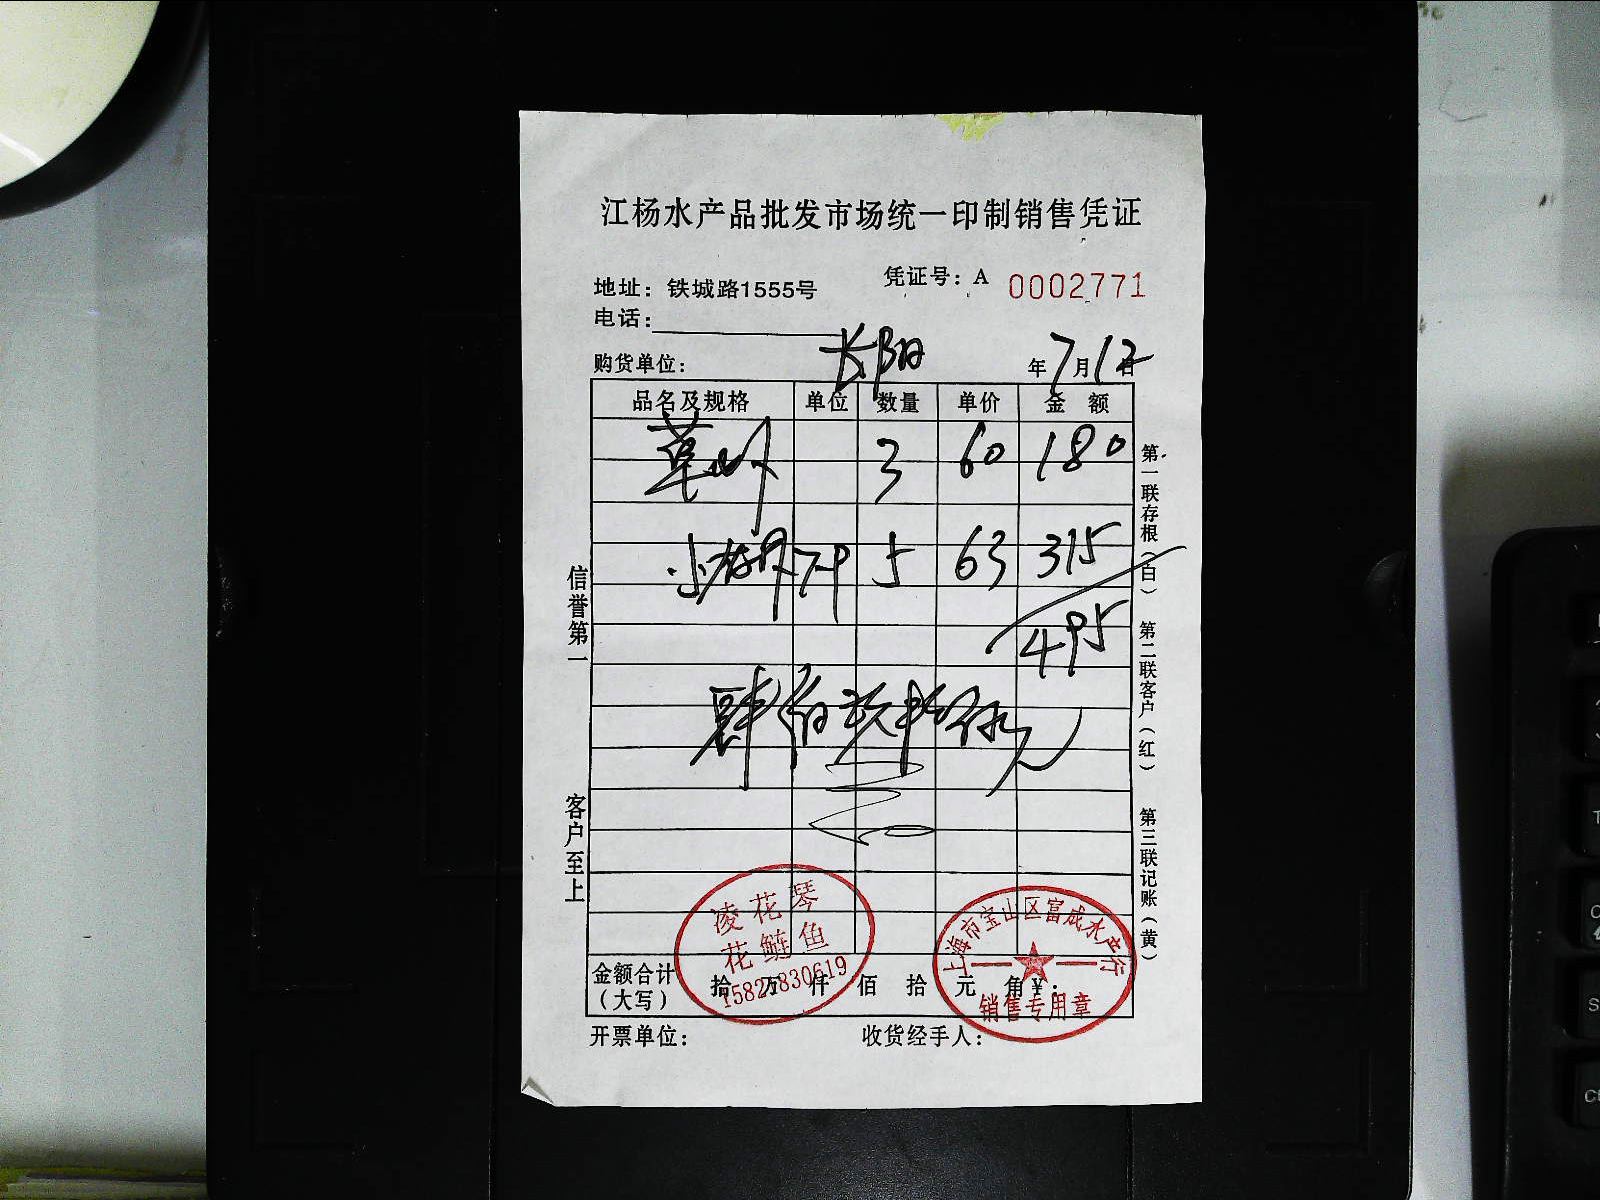 江杨水产品批发市场统一印制销售凭证
凭证号：A 0002771
地址：铁城路1555号
电话：
购货单位： 长阳 年7月12日
品名及规格 单位 数量 单价 金额
草 3 60 180
小 5 63 315
495
肆佰玖拾伍元
信誉第一
客户至上
第一联存根（白） 第二联客户（红） 第三联记账（黄）
凌花琴
花鲢鱼
上海市宝山区富成水产行
销售专用章
金额合计（大写） 拾 万 仟 佰 拾 元 角 ¥：
开票单位： 收货经手人：